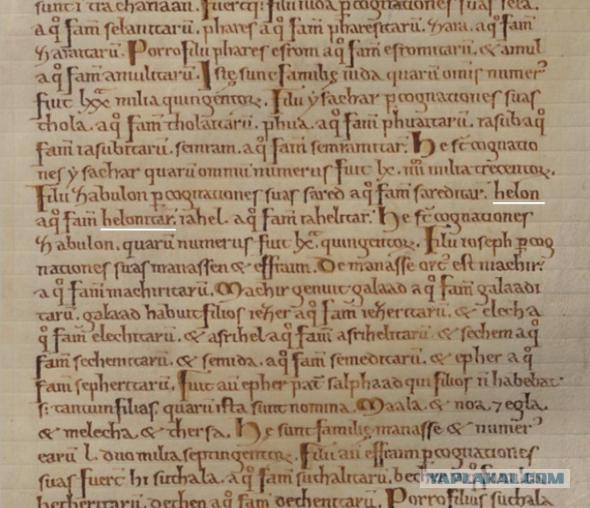 sunt et trachanaan. fuerq; filii iuda p cognationes suas sela.
a q̊ fam̄ selanitarū. phares a q̊ fam̄ pharesitarū. zara. a q̊ fam̄
zaraitarū. Porro filii phares esrom a q̊ fam̄ esromitarū. & amul
a q̊ fam̄ amulitarū. Iste sunt familię iuda quarū omis numer᾽
fuit lxx milia quingentor̄. Filii ysachar p cognationes suas
thola. a q̊ fam̄ tholaitarū. phua. a q̊ fam̄ phuaitarū. iasub a q̊
fam̄ iasubitarū. semram. a q̊ fam̄ semramitar̄. He st̄ cognatio
nes ysachar quarū omniū numerus fuit lx. iiii milia trecentor̄.
Filii zabulon p cognationes suas sared a q̊ fam̄ sareditar̄. helon
a q̊ fam̄ helonitar̄. iahel. a q̊ fam̄ iahelitar̄. He st̄ cognationes
zabulon. quarū numerus fuit lx. quingentor̄. Filii ioseph p cog
nationes suas manassen & effraim. De manasse ort᾽ est machir᾽
a q̊ fam̄ machiritarū. Machir genuit galaad a q̊ fam̄ galaadi
tarū. galaad habuit filios iezer a q̊ fam̄ iezeritarū. & elech a
q̊ fam̄ elechitarū. & asrihel a q̊ fam̄ asrihelitarū. & sechem a q̊
fam̄ sechemitarū. & semida. a q̊ fam̄ semeditarū. & epher a q̊
fam̄ sepheritarū. fuit aū epher pat̄ salphaad qui filios ñ habebat
s; tantum filias. quarū ista sunt nomina. Maala. & noa. 7 egla.
& melcha. & thersa. He sunt familię manasse & numer᾽
earū l. duo milia septingentor̄. Filii aū effraim p cognationes
suas fuert̄ hi suthala. a q̊ fam̄ suthalitarū. bech
becheritarū. dethen a q̊ fam̄ dethenitarū. Porro filius suthala
YAPLAKAL.COM